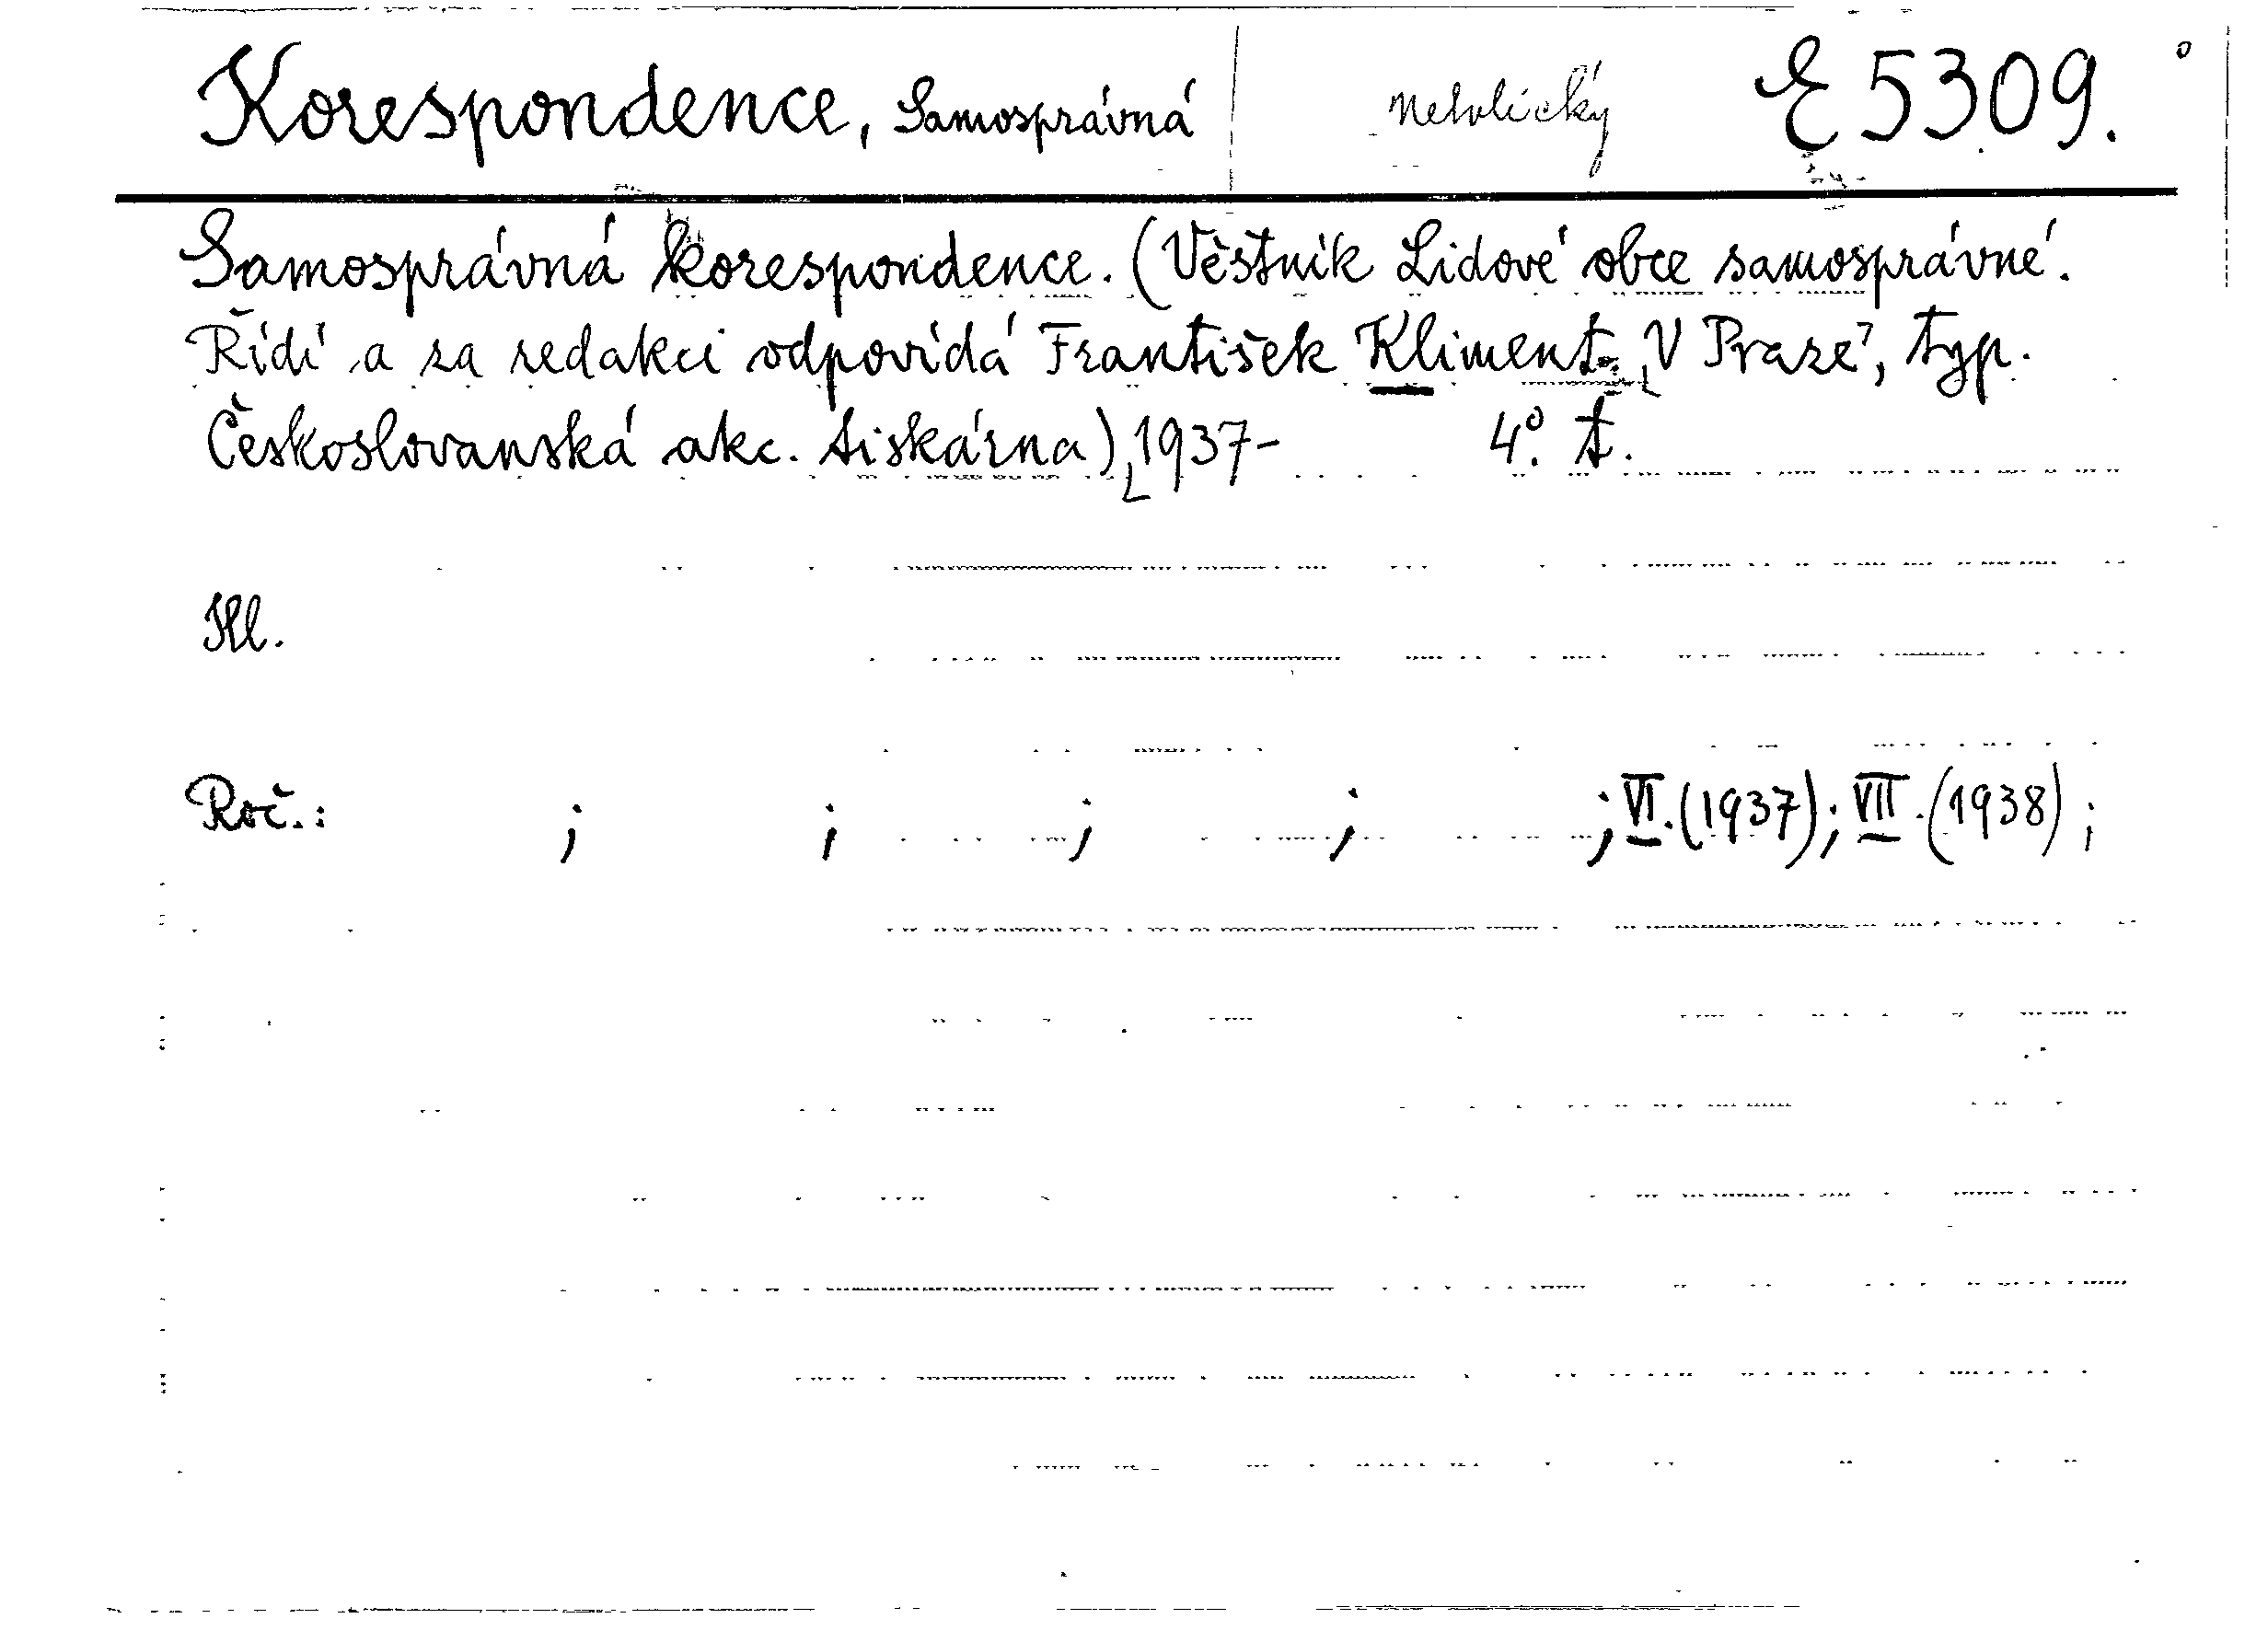 Korespondence, Samosprávná Netolický E 5309.
Samosprávná korespondence. (Věstník Lidové obce samosprávné.
Řídí a za redakci odpovídá František Kliment. V Praze, typ.
Českoslovanská akc. tiskárna) 1937- 4° t.
Hl.
Roč.: ; ; ; ; ; VI. (1937); VII. (1938);